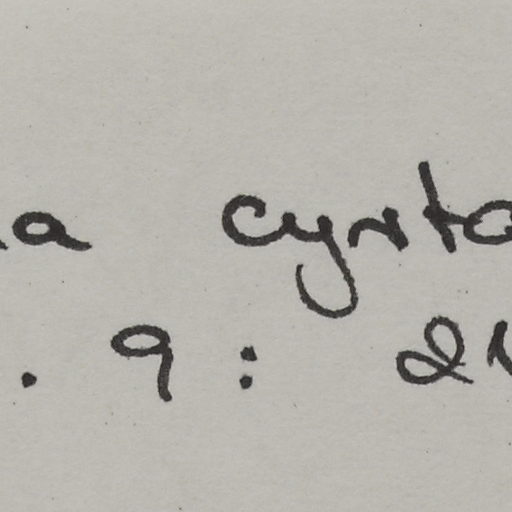 a cyrta
. 9: 21